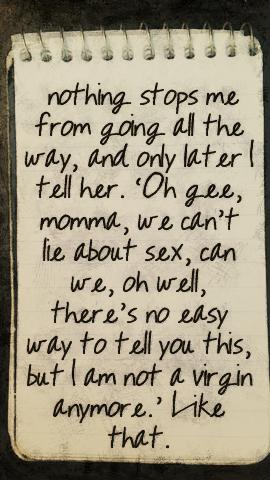 nothing stops me
from going all the
way, and only later I
tell her. 'Oh gee,
momma, we can't
lie about sex, can
we, oh well,
there's no easy
way to tell you this,
but I am not a virgin
anymore.' Like
that.